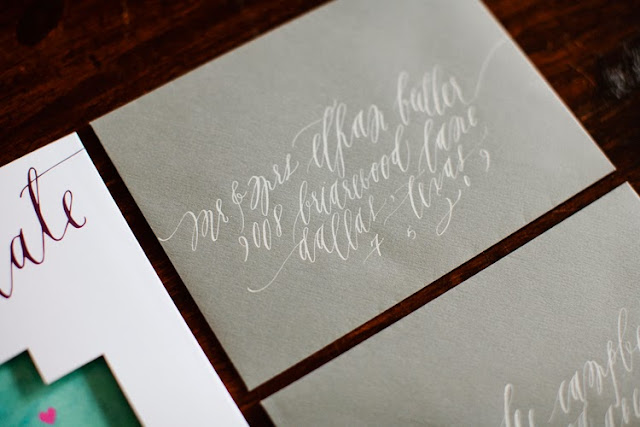 ate
Mr & Mrs ethan butler
9008 briarwood lane
dallas, texas
7 5 2 0 9
campb